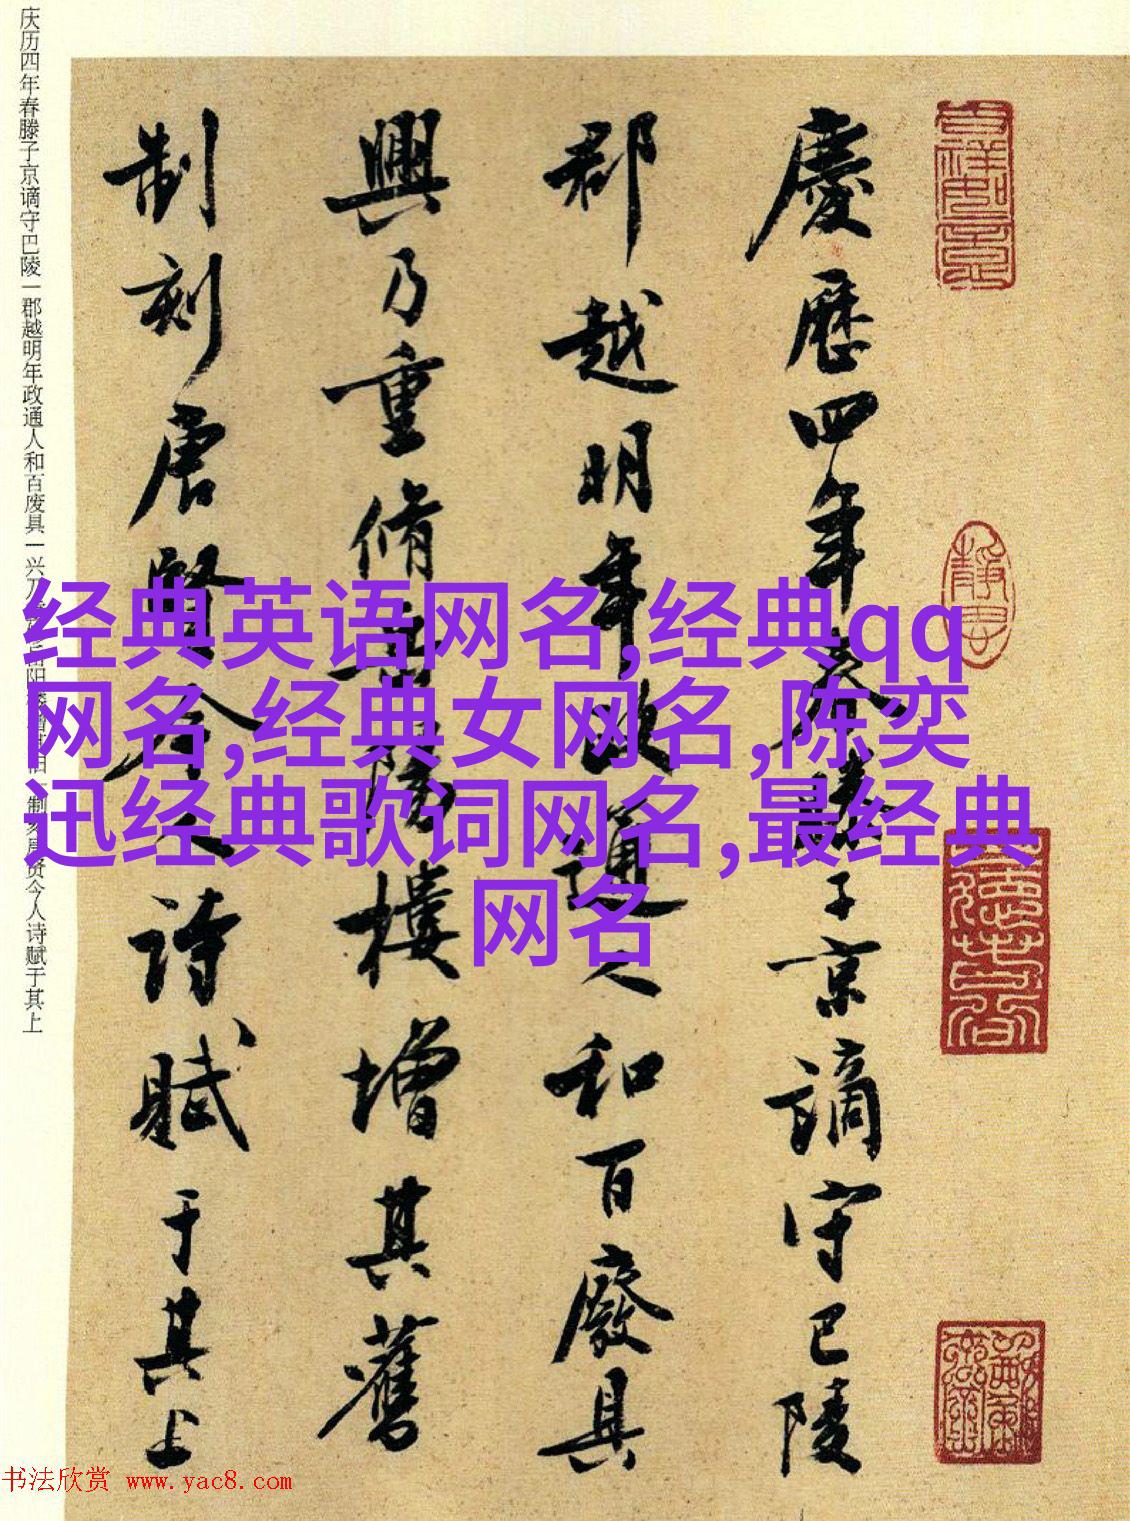 慶歷四年春滕子京謫守巴陵
郡越明年政通人和百廢具
興乃重脩岳陽樓增其舊
制刻唐賢今人詩賦于其上
庆历四年春滕子京谪守巴陵一郡越明年政通人和百废具一兴乃
阳楼增其旧一制刻唐贤今人诗赋于其上
经典英语网名,经典qq
网名,经典女网名,陈奕
迅经典歌词网名,最经典
网名
书法欣赏 www.yac8.com